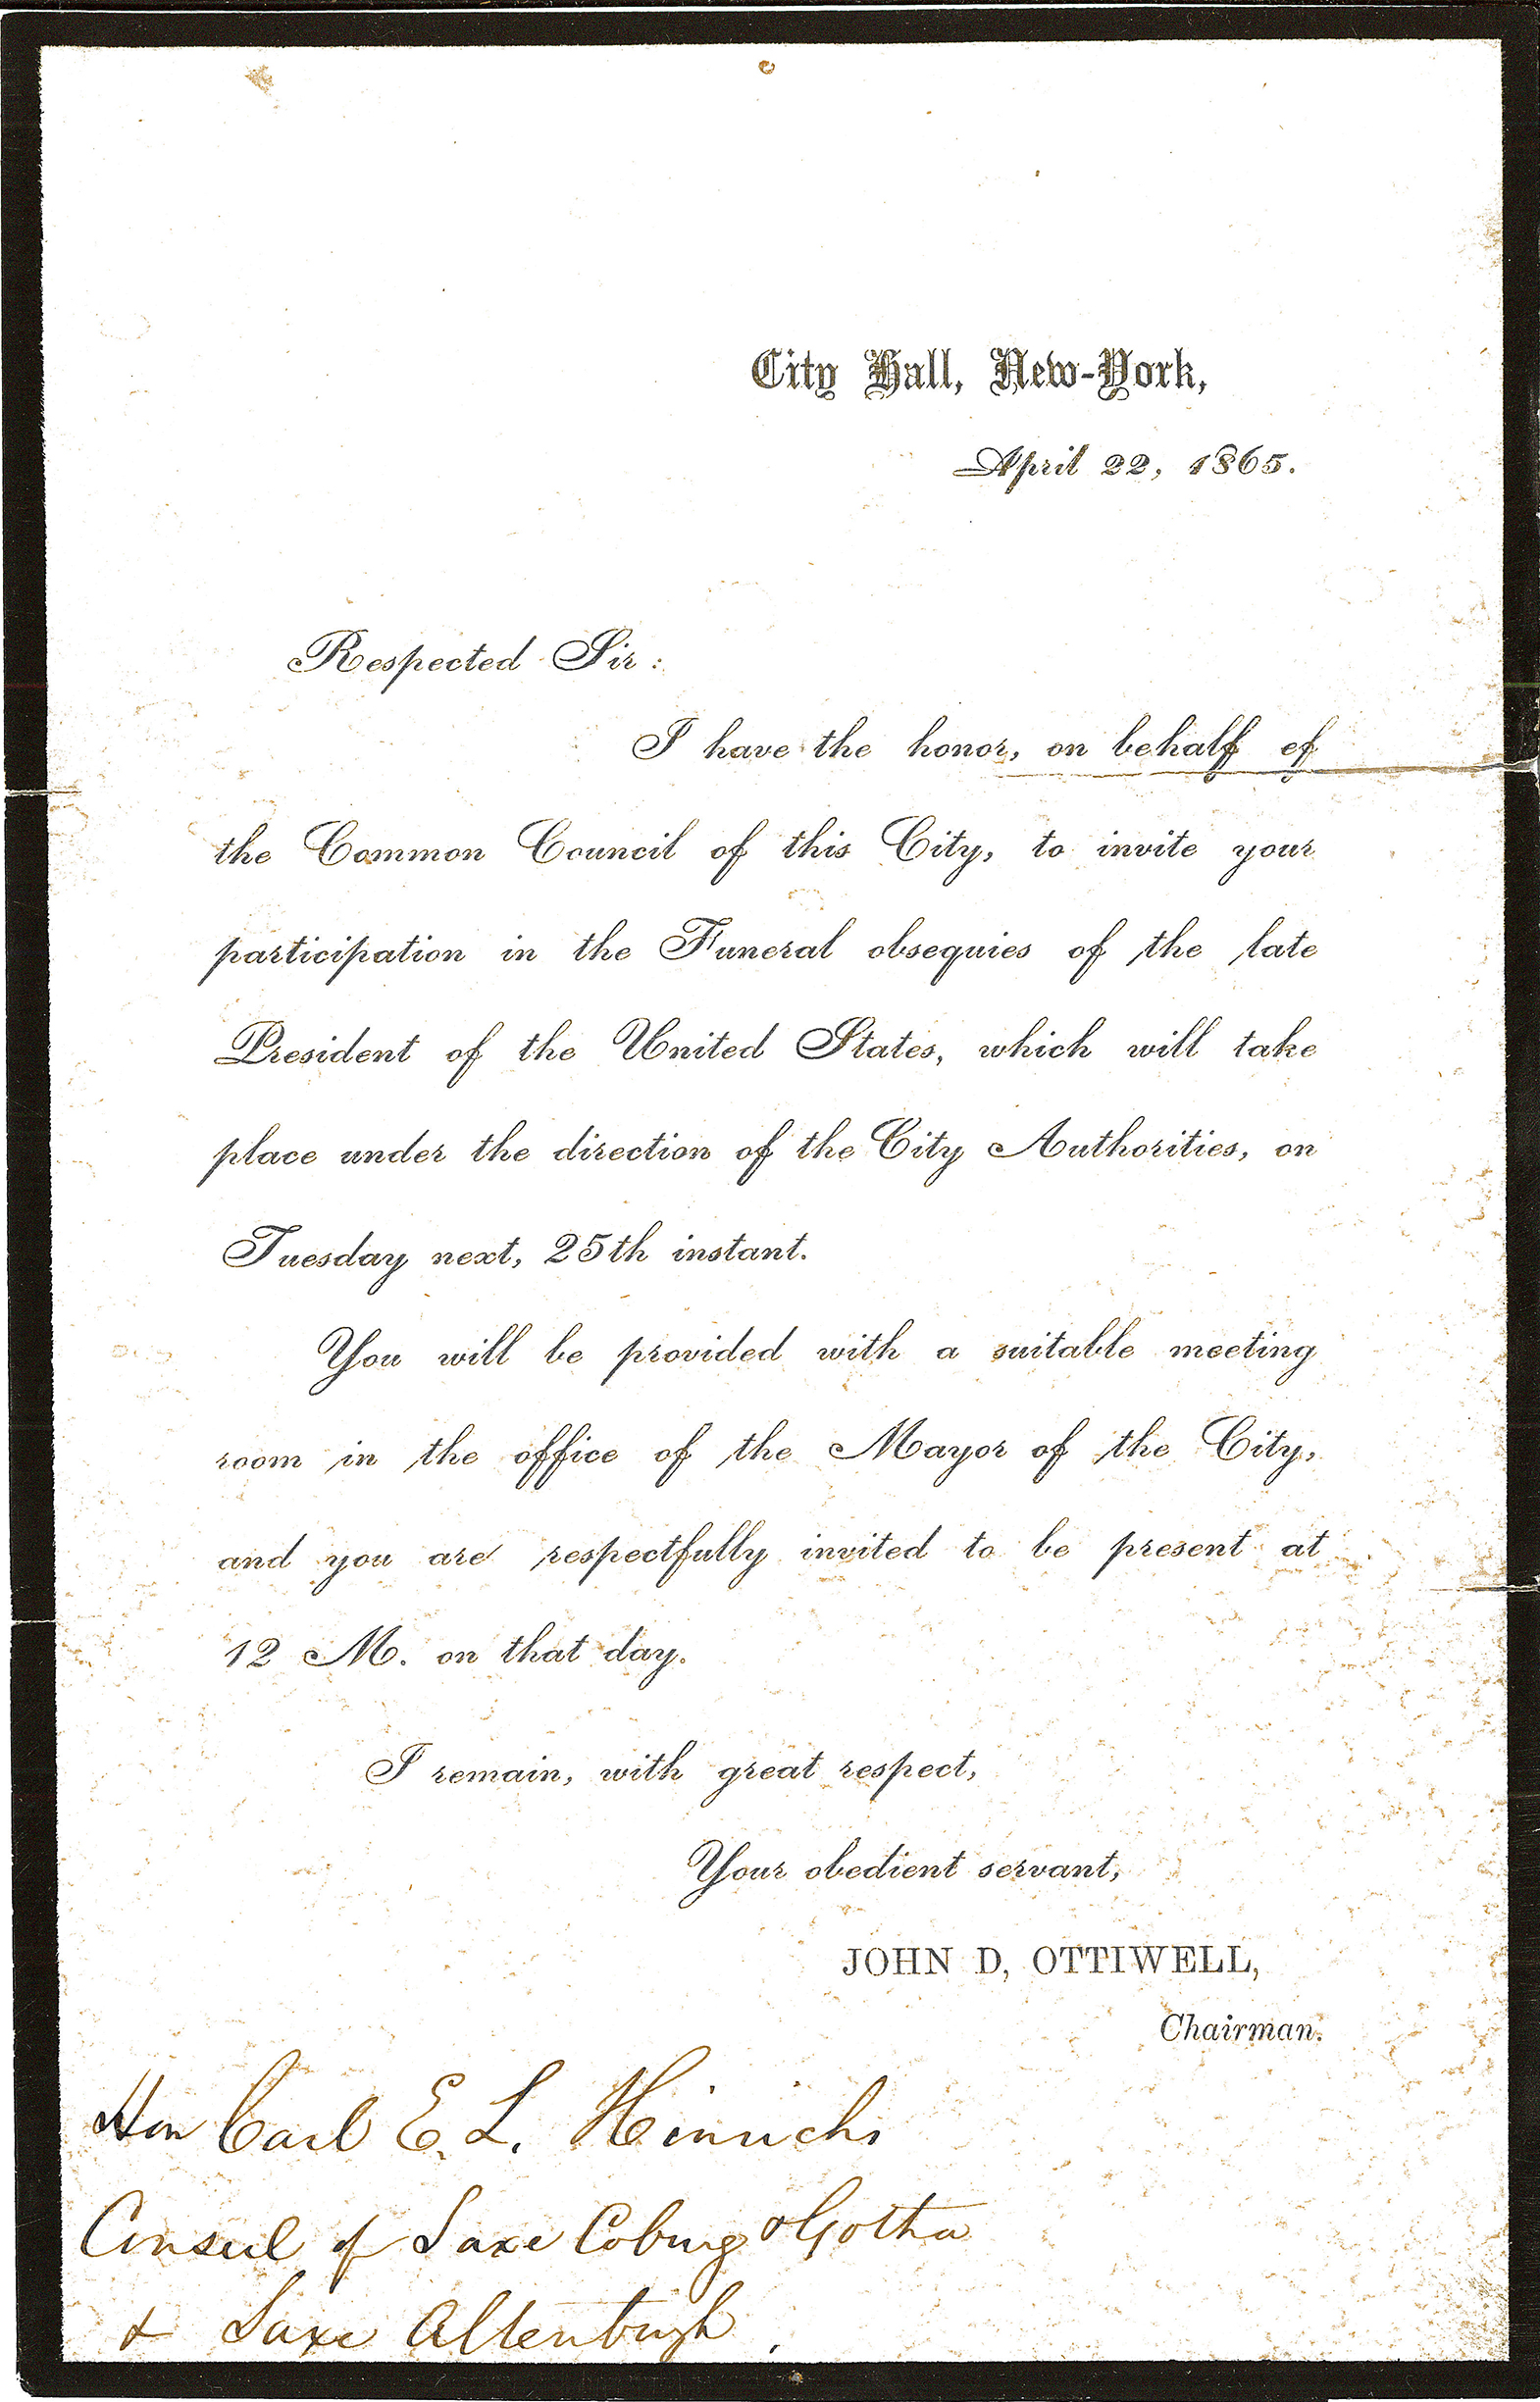 City Hall, New-York,
April 22, 1865.
Respected Sir:
I have the honor, on behalf of
the Common Council of this City, to invite your
participation in the Funeral obsequies of the late
President of the United States, which will take
place under the direction of the City Authorities, on
Tuesday next, 25th instant.
You will be provided with a suitable meeting
room in the office of the Mayor of the City,
and you are respectfully invited to be present at
12 M. on that day.
I remain, with great respect,
Your obedient servant,
JOHN D, OTTIWELL,
Chairman.
Hon Carl E. L. Hinrichs
Consul of Saxe Coburg & Gotha
& Saxe Altenburgh.